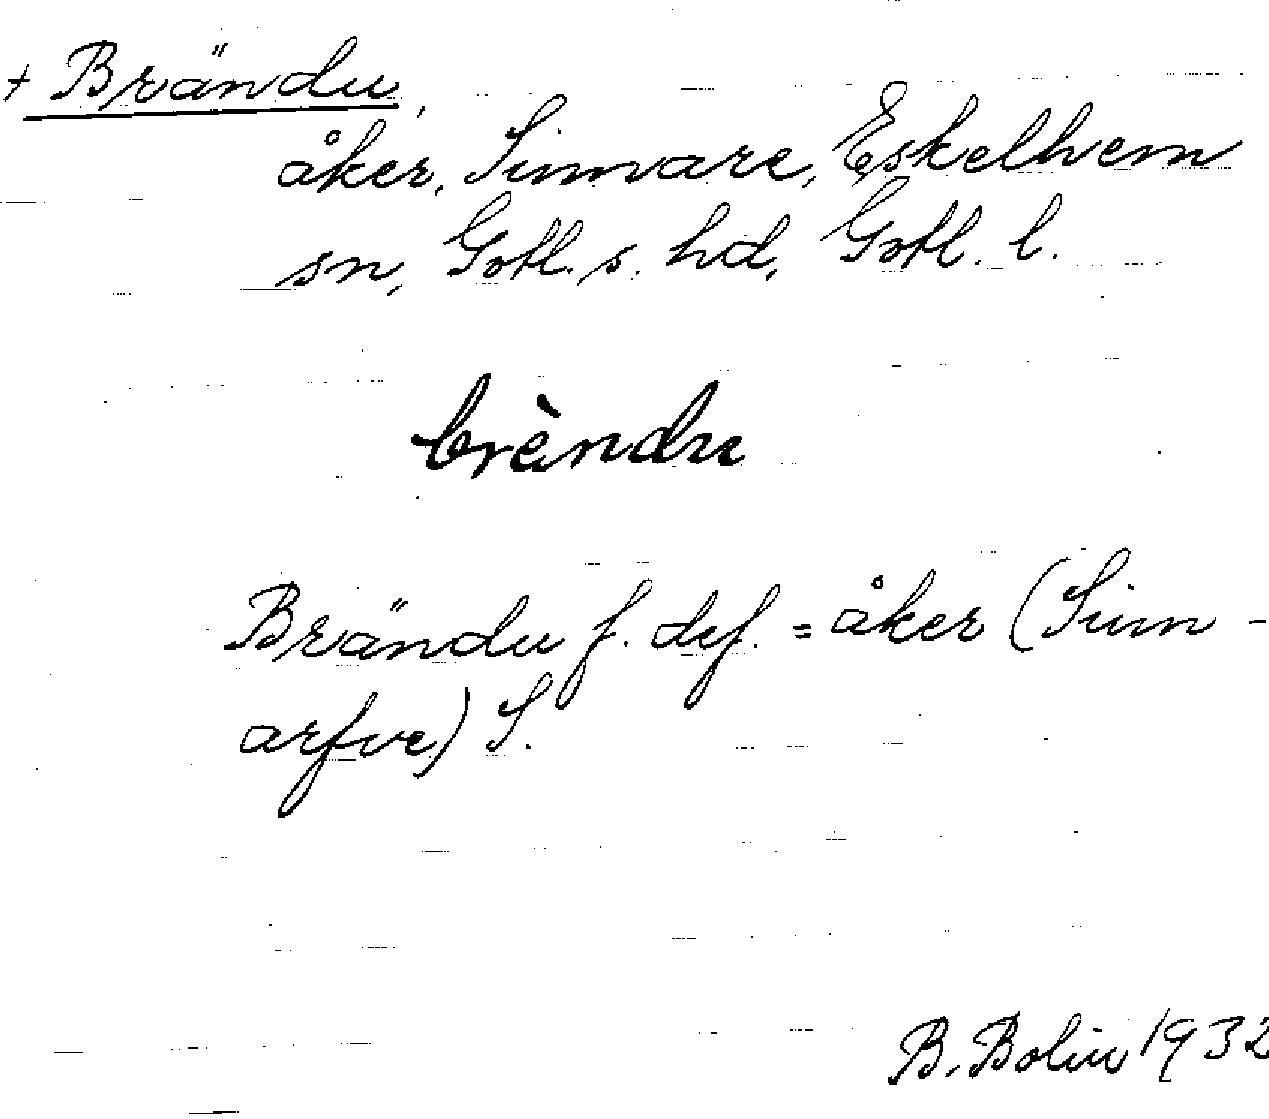 + Brändu,
åker, Simvare, Eskelhem
sn, Gotl. s. hd, Gotl. l.
brèndu
Brändu f. def. = åker (Sim-
arfve) S.
B. Bolin 1932